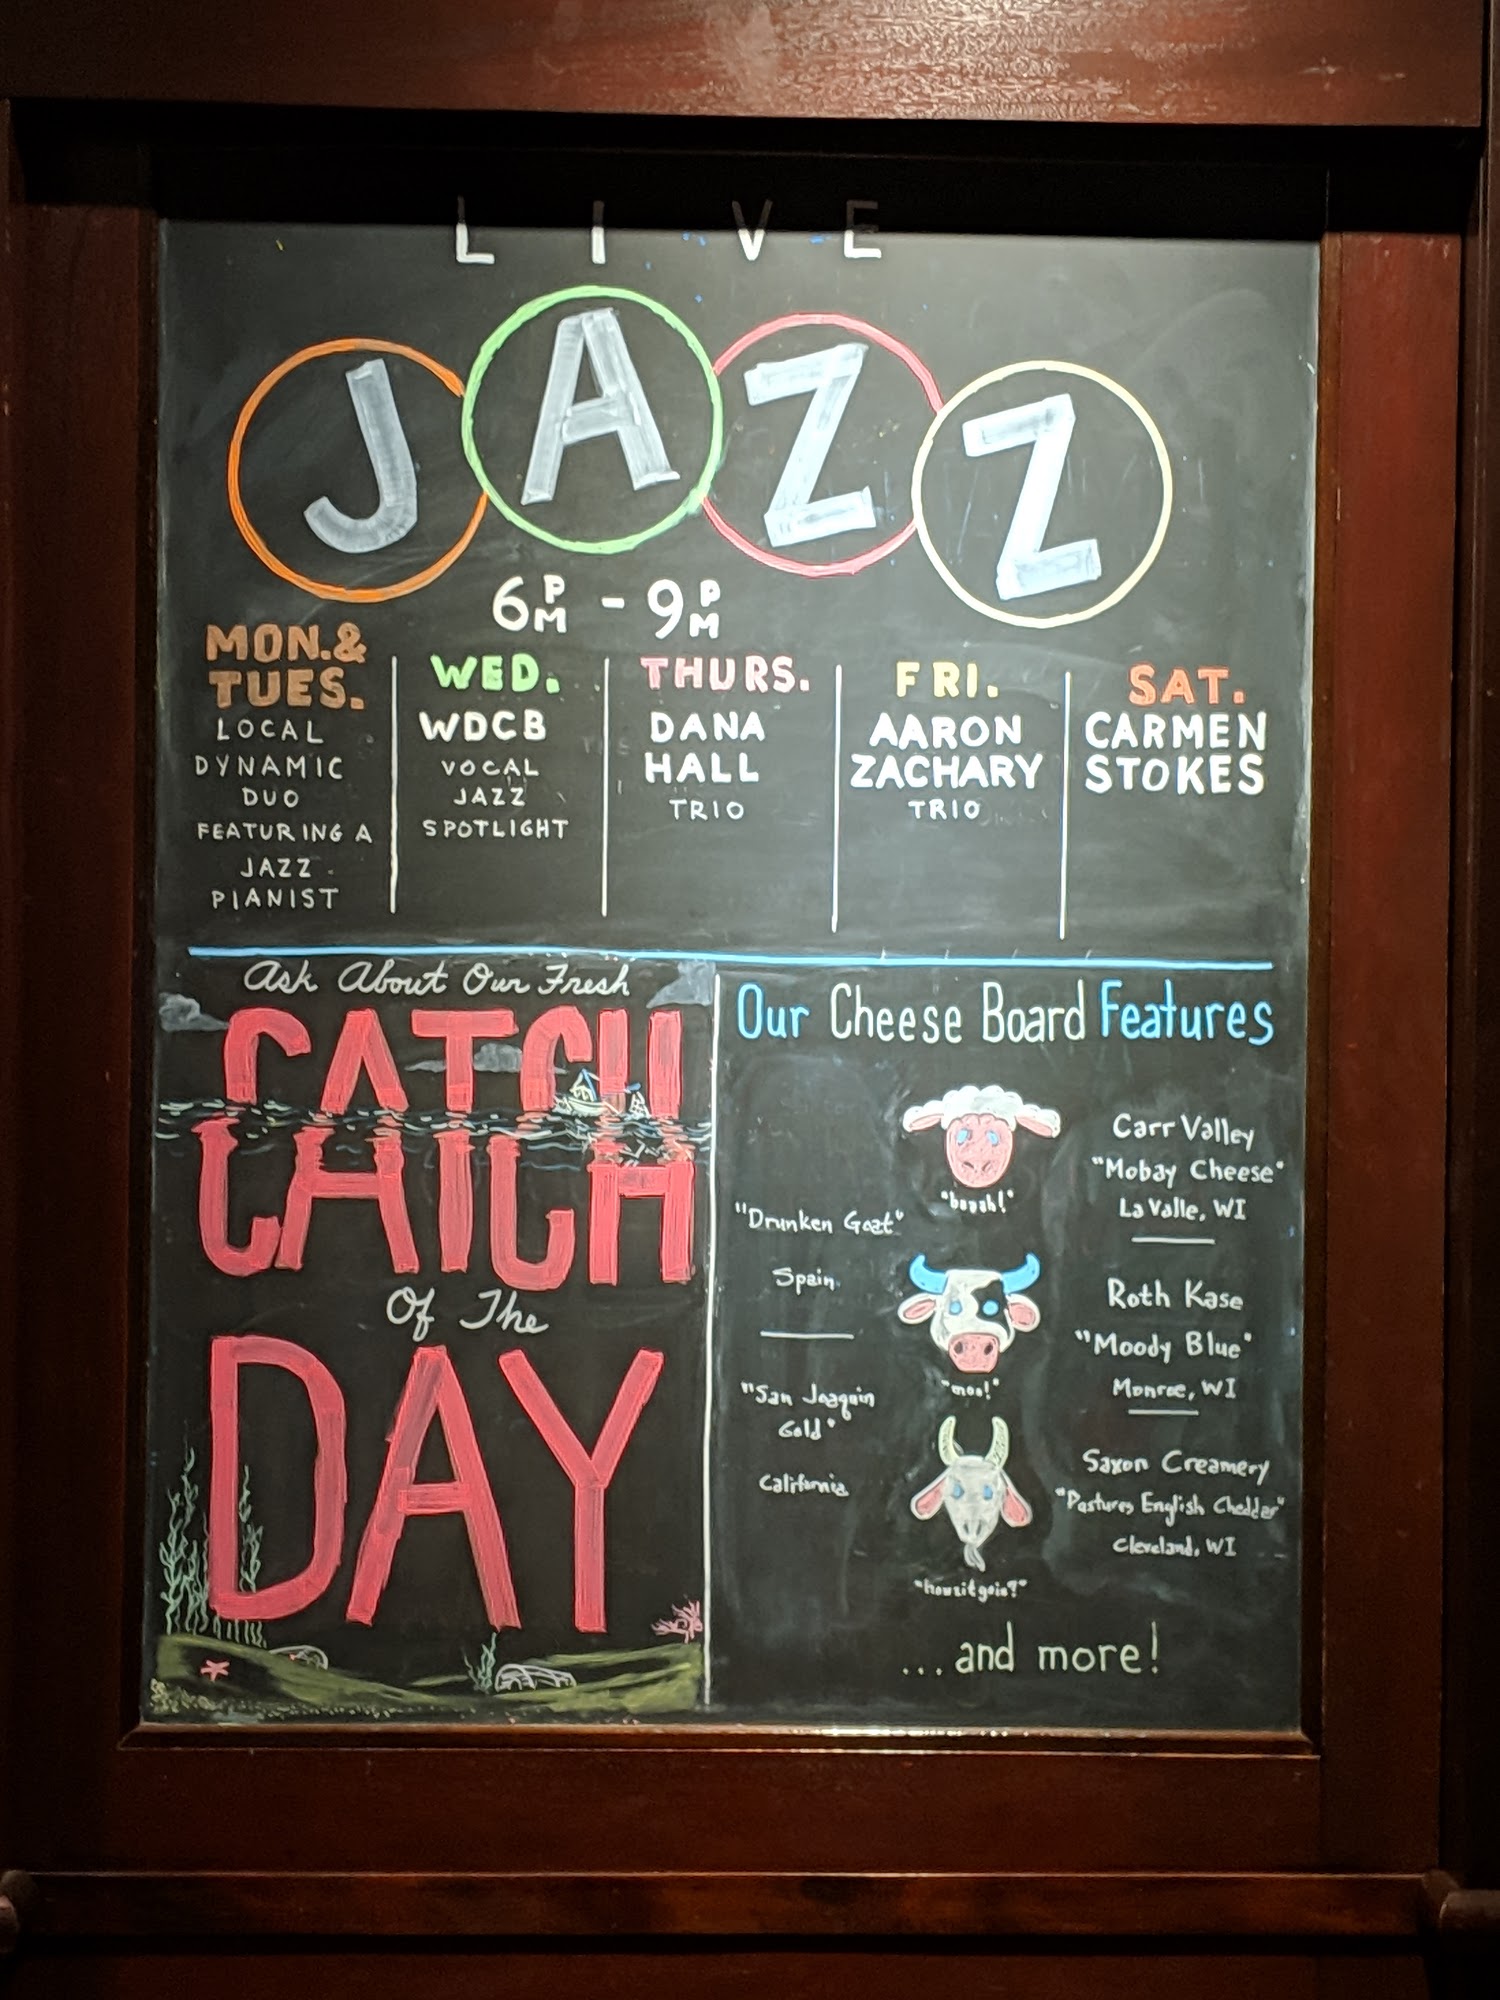 LIVE
JAZZ
6PM - 9PM
MON.&
TUES.
LOCAL
DYNAMIC
DUO
FEATURING A
JAZZ
PIANIST
WED.
WDCB
VOCAL
JAZZ
SPOTLIGHT
THURS.
DANA
HALL
TRIO
FRI.
AARON
ZACHARY
TRIO
SAT.
CARMEN
STOKES
Ask About Our Fresh
CATCH
Of The
DAY
Our Cheese Board Features
"Drunken Goat"
Spain
"San Joaquin
Gold"
California
"moo!"
"howzitgoin?"
Carr Valley
"Mobay Cheese"
La Valle, WI
Roth Kase
"Moody Blue"
Monroe, WI
Saxon Creamery
"Pastures English Cheddar"
Cleveland, WI
...and more!